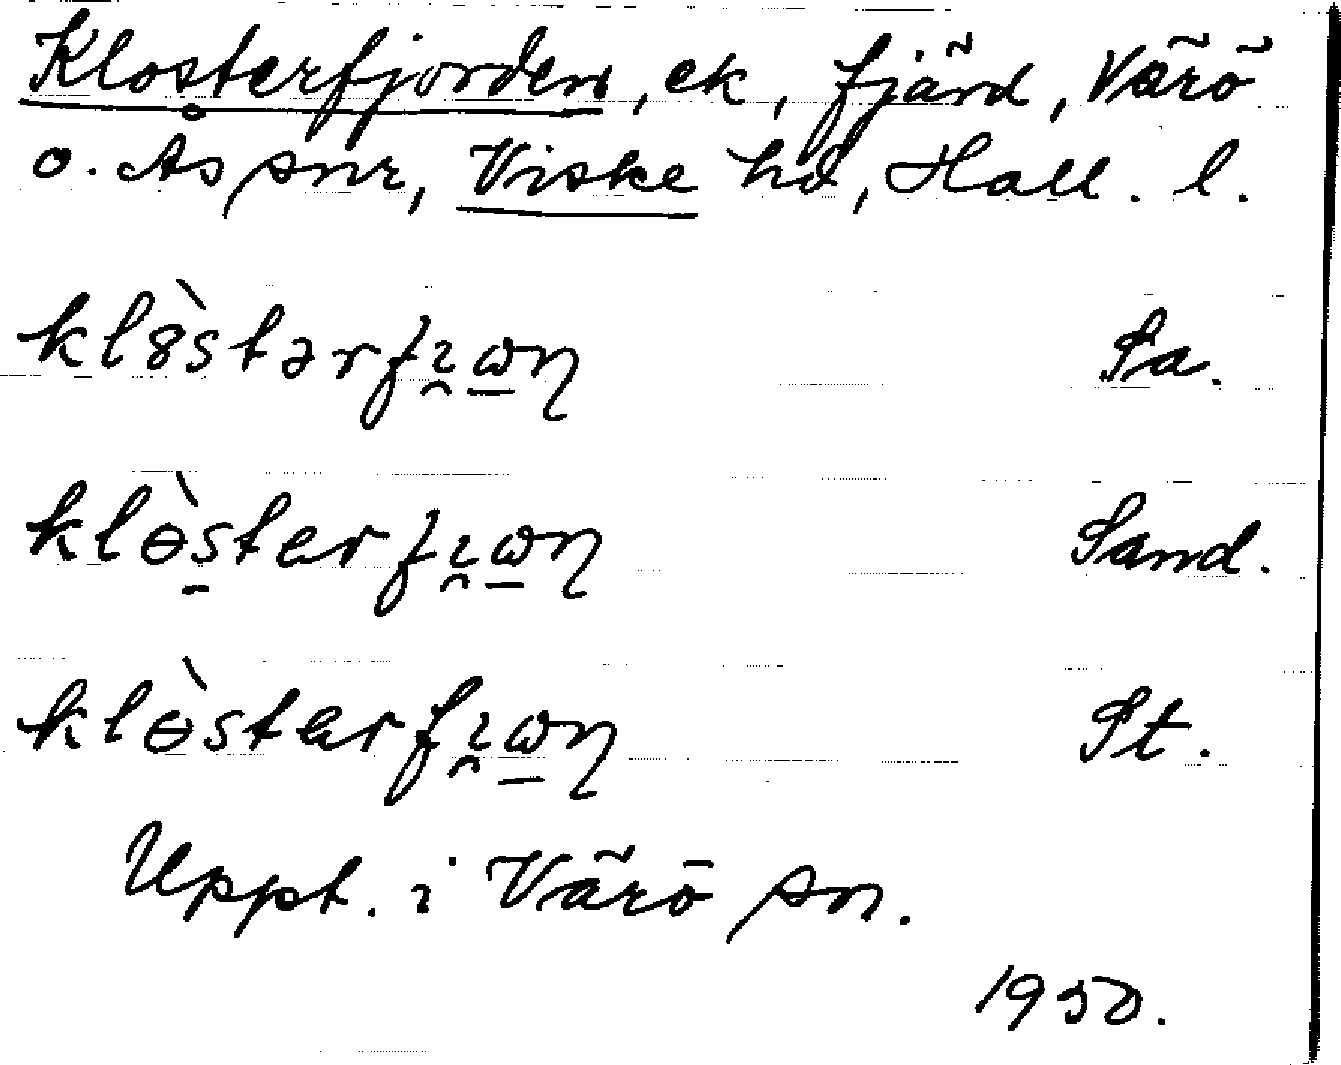 Klosterfjorden, ek, fjärd, Värö
o. Ås snr, Viske hd, Hall. l.
Sa.
Sand.
St.
Uppt. i Värö sn.
1950.